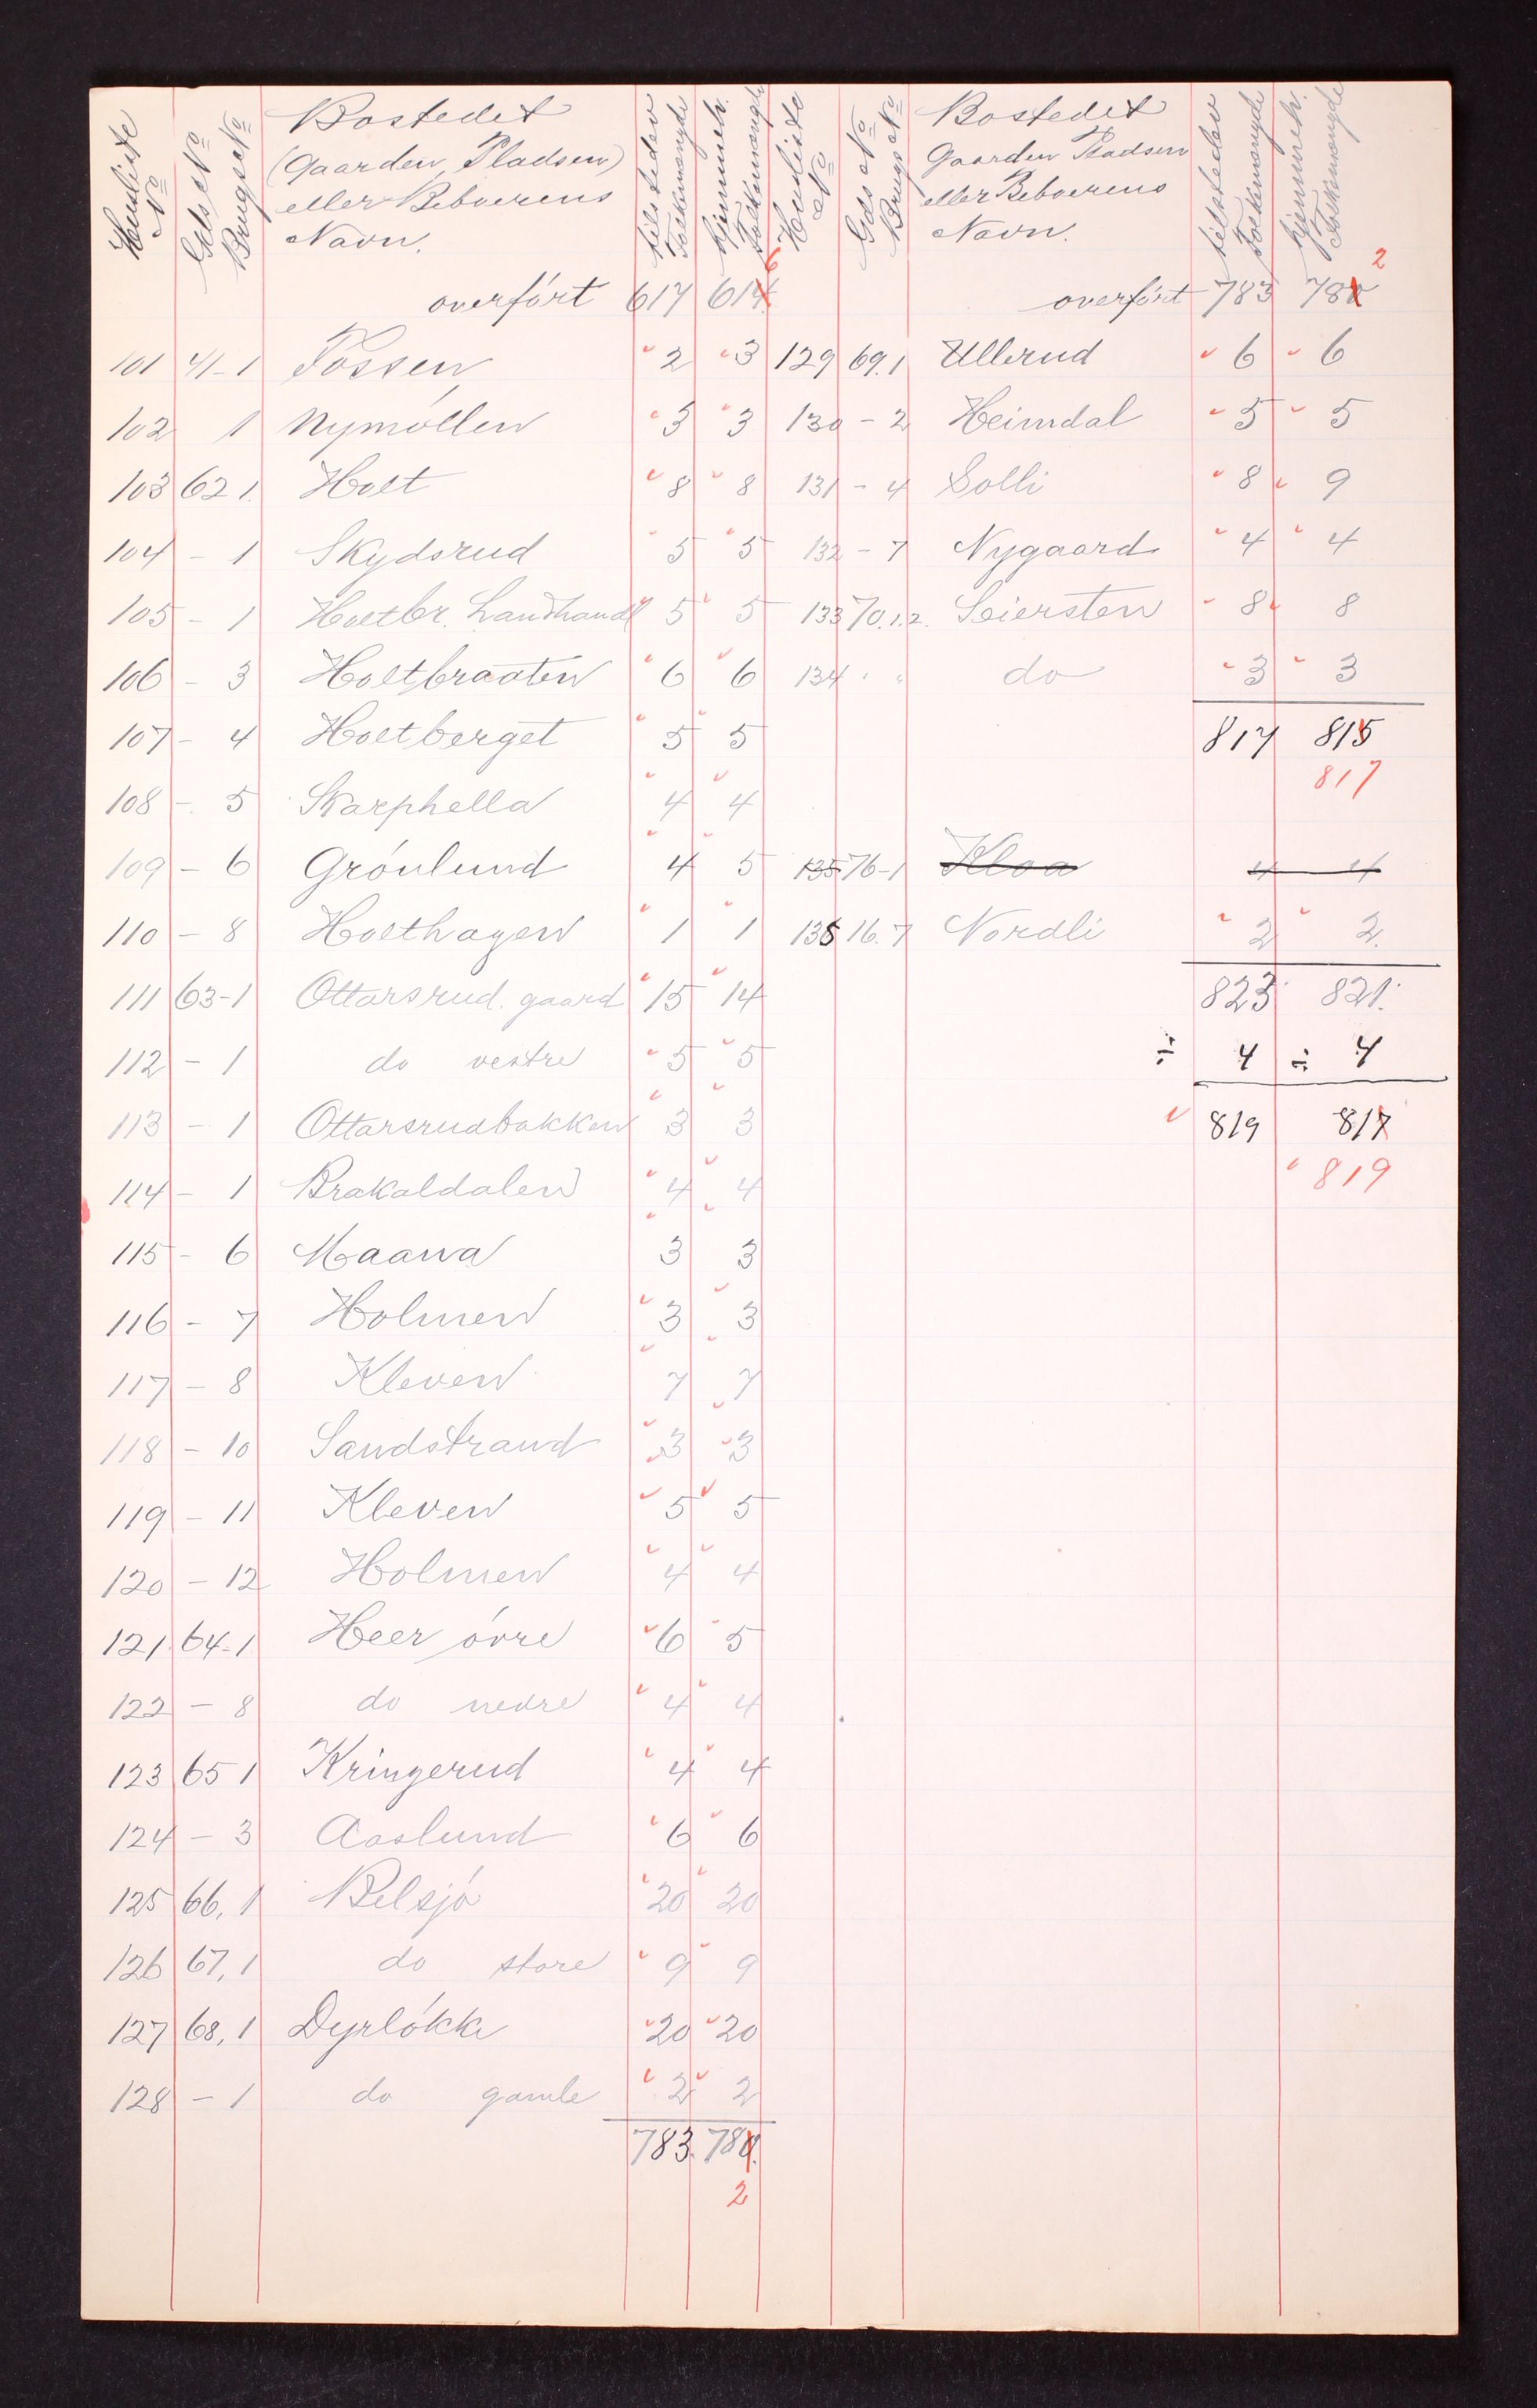 Husliste No | Gds No Brugs No | Bostedet (Gaarden, Pladsen) eller Beboerens Navn. | tilstedev Folkemængde | hjemmeh. Folkemængde
overført 617 614 6
101 41-1 Fossen 2 3
102 1 Nymøllen 3 3
103 62 1. Holt 8 8
104 - 1 Skydsrud 5 5
105 - 1 Holtbr. Landhandl 5 5
106 - 3 Holtbraaten 6 6
107 - 4 Holtberget 5 5
108 - 5 Skarphella 4 4
109 - 6 Grónlund 4 5
110 - 8 Holthagen 1 1
111 63-1 Ottarsrud. gaard 15 14
112 - 1 do vestre 5 5
113 - 1 Ottarsrudbakken 3 3
114 - 1 Brakaldalen 4 4
115 - 6 Maana 3 3
116 - 7 Holmen 3 3
117 - 8 Kleven 7 7
118 - 10 Sandstrand 3 3
119 - 11 Kleven 5 5
120 - 12 Holmen 4 4
121 64-1 Heer óvre 6 5
122 - 8 do nedre 4 4
123 65 1 Kringerud 4 4
124 - 3 Aaslund 6 6
125 66, 1 Belsjó 20 20
126 67, 1 do store 9 9
127 68, 1 Dyrlókke 20 20
128 - 1 do gamle 2 2
783. 780.
2
Husliste No | Gds No Brugs No | Bostedet Gaarden Pladsen eller Beboerens Navn. | tilstedev Folkemængde | hjemmeh. Folkemængde
overført 783 780 2
129 69.1 Ullerud 6 6
130 - 2 Heimdal 5 5
131 - 4 Solli 8 9
132 - 7 Nygaard 4 4
133 70.1.2. Seiersten 8 8
134 " " do 3 3
817 815
817
135 76-1 Kloa 4 4
135 16.7 Nordli 2 2.
823 821.
÷ 4 ÷ 4
819 817
819